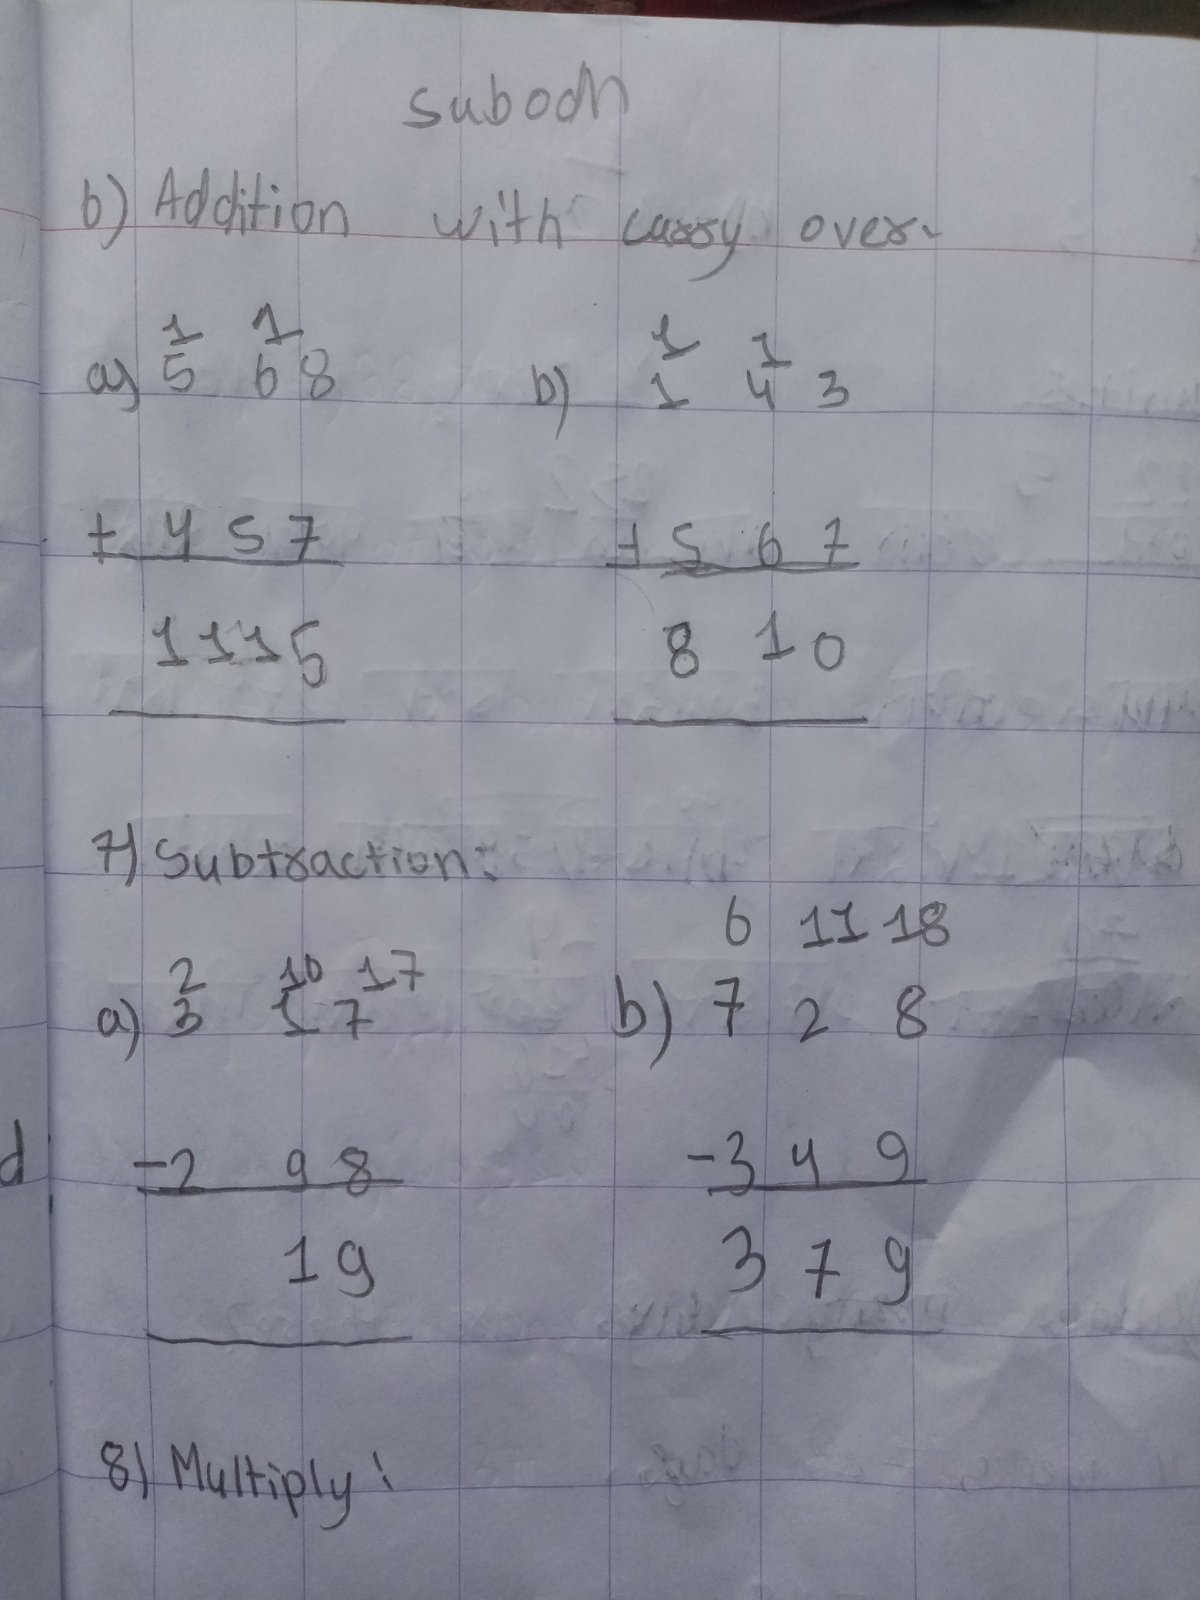 subodh
6) Addition with carry over.
1 1
a) 5 6 8
+ 4 5 7
1 1 1 5
1 1
b) 1 4 3
+ 5 6 7
8 1 0
7) Subtraction:
2 10 17
a) 3 1 7
- 2 9 8
1 9
6 11 18
b) 7 2 8
- 3 4 9
3 7 9
d
8) Multiply: